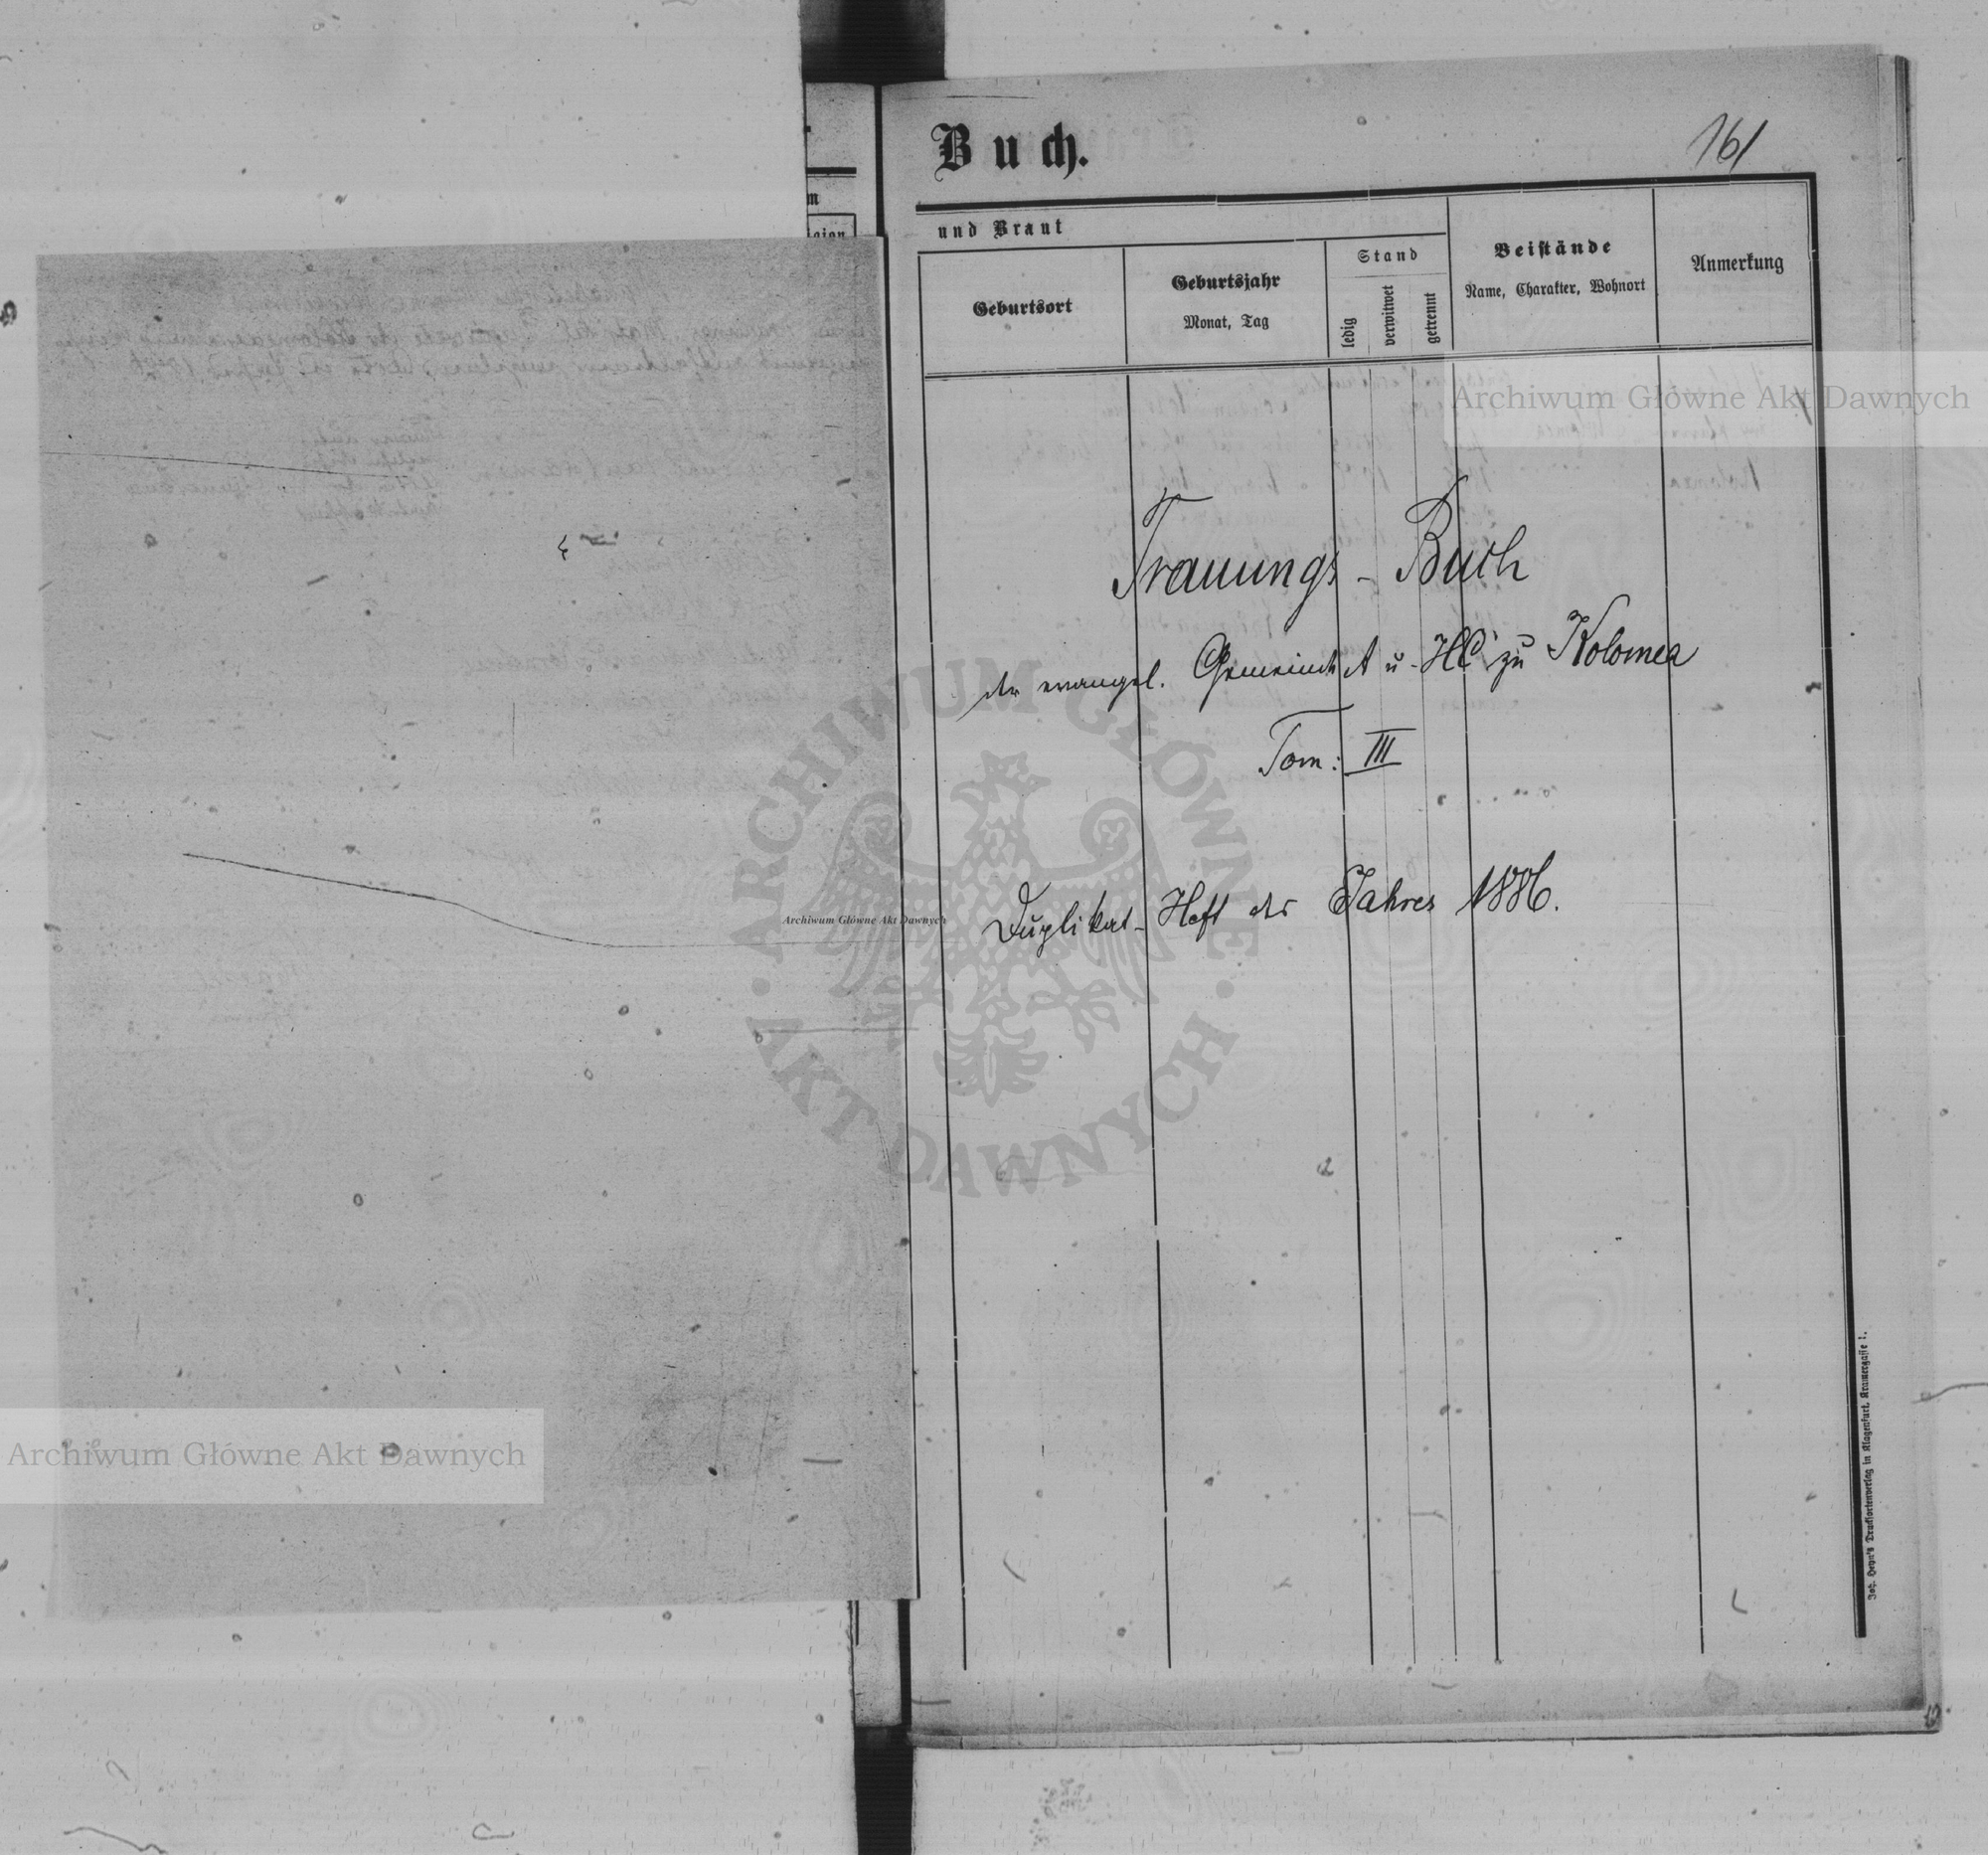 Buch.
161
und Braut
Geburtsort
Geburtsjahr
Monat, Tag
Stand
ledig
verwitwet
getrennt
Beistände
Name, Charakter, Wohnort
Anmerkung
Archiwum Główne Akt Dawnych
Trauungs - Buch
der evangel. Gemeinde A u. HC zu Kolomea
Tom: III
ARCHIWUM GŁÓWNE
AKT DAWNYCH
Archiwum Główne Akt Dawnych
Duplikat-Heft des Jahres 1886.
Archiwum Główne Akt Dawnych
Joh. Heyn's Drucksortenverlag in Klagenfurt, Kramergasse 1.